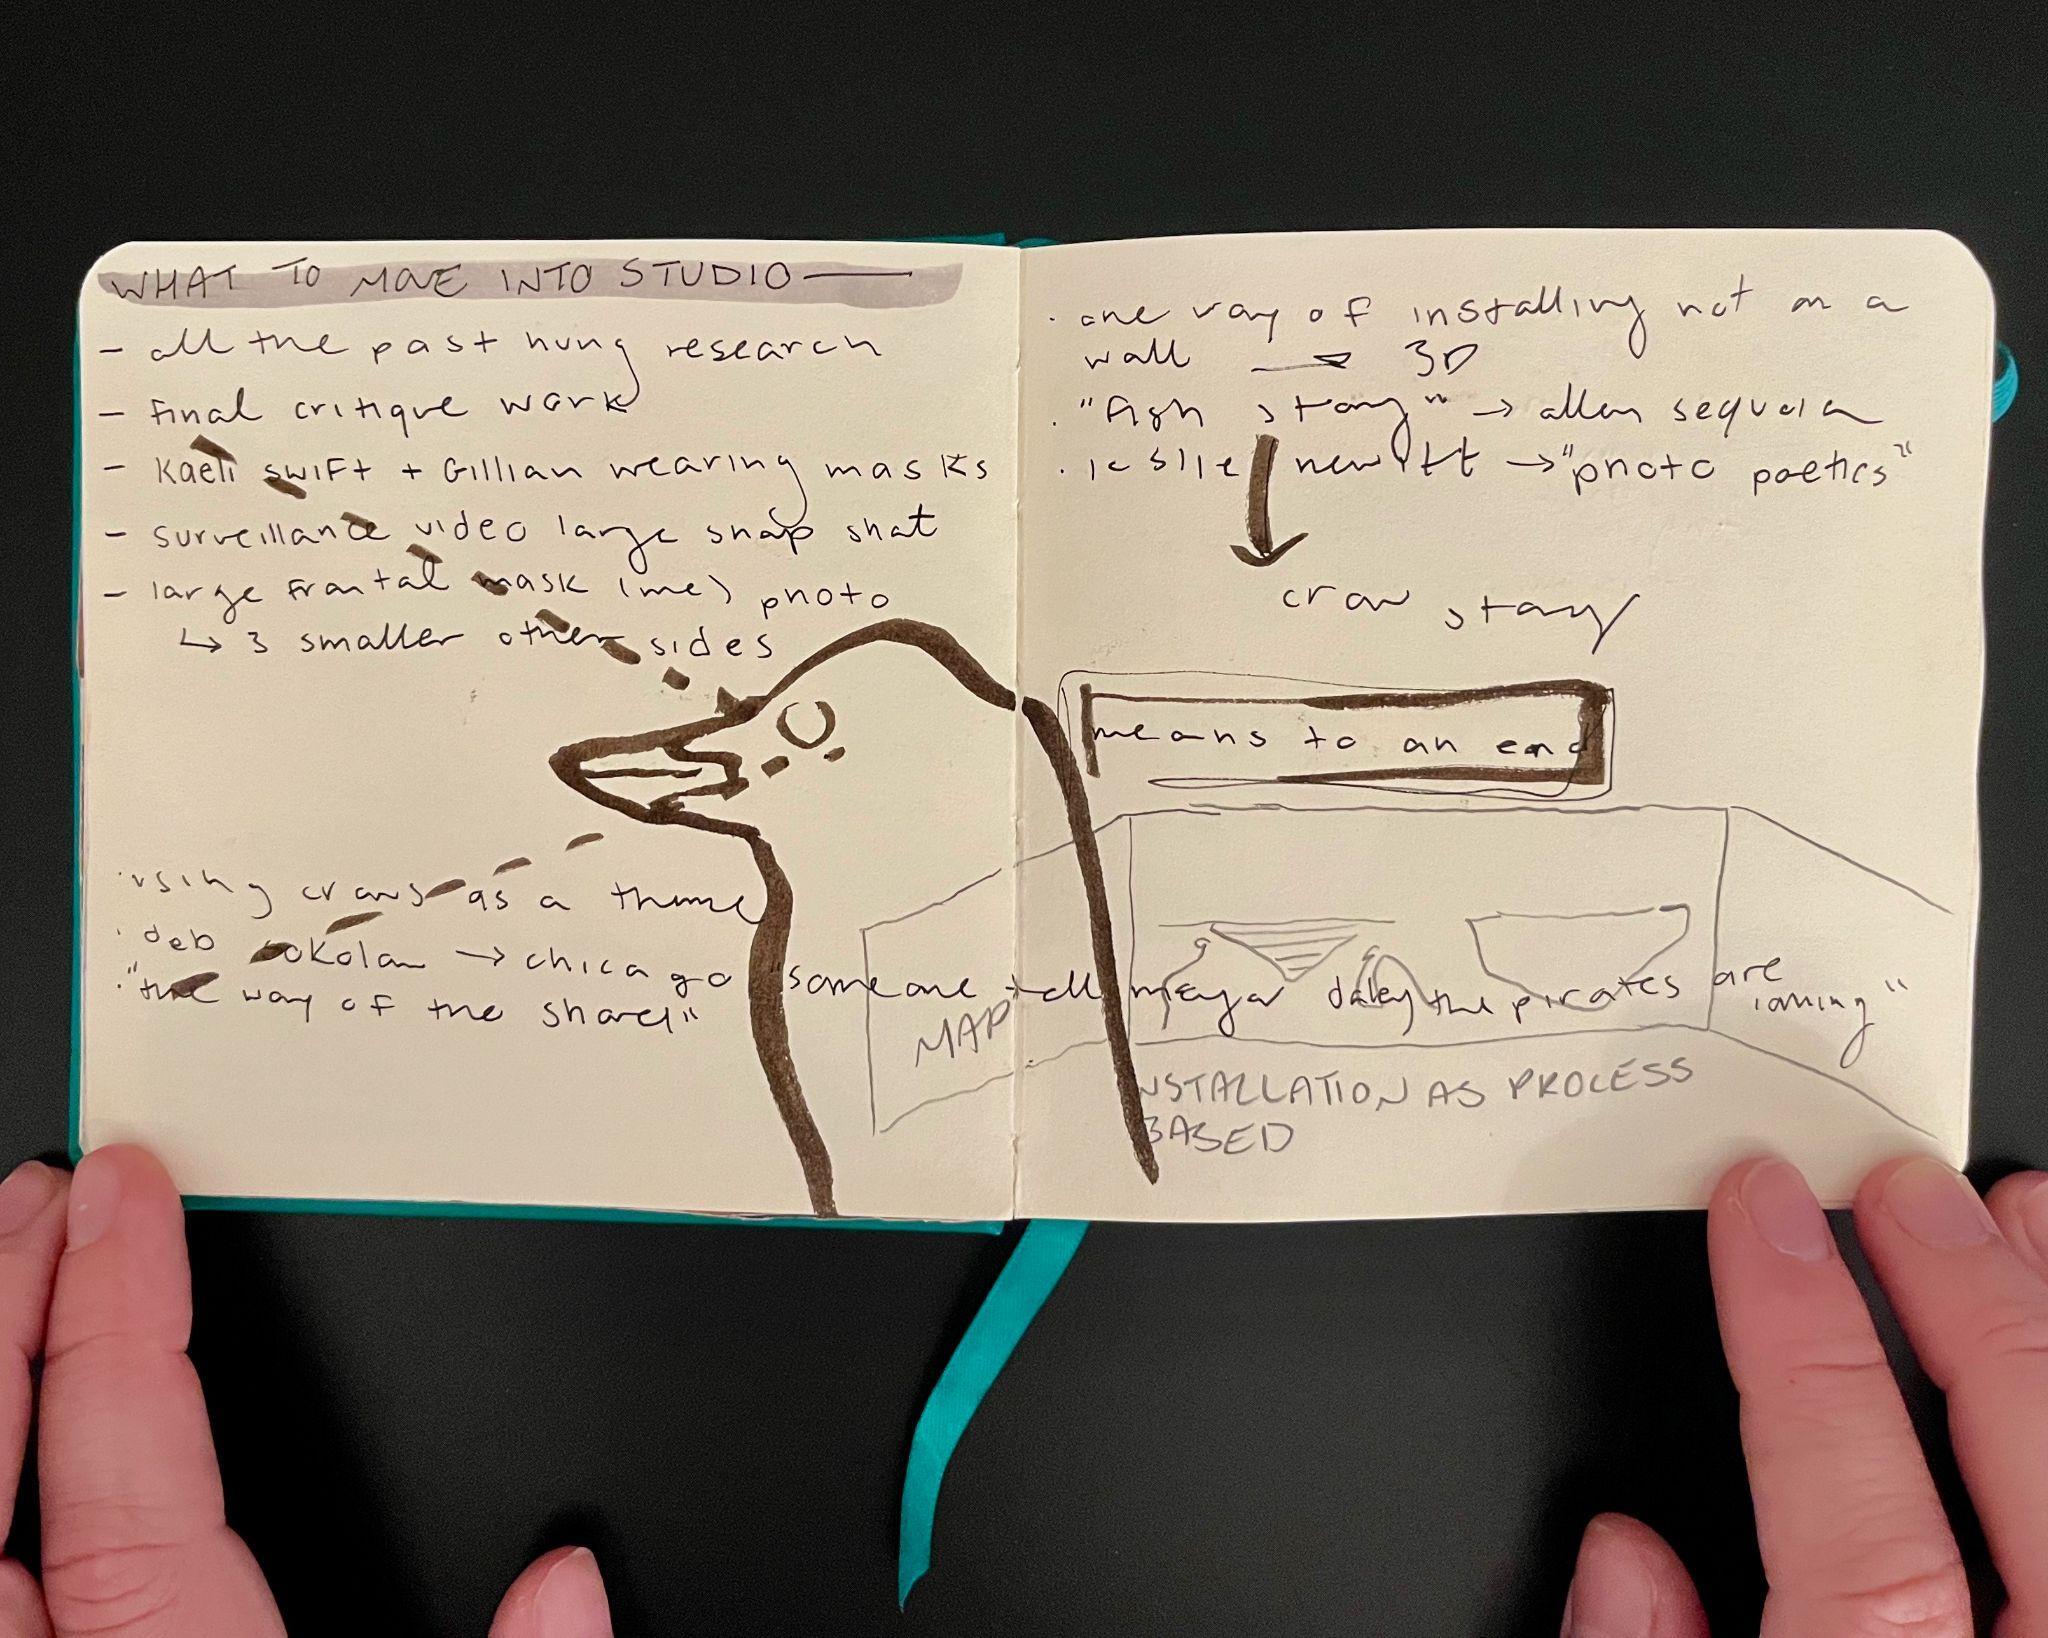 WHAT TO MOVE INTO STUDIO —
- all the past hung research
- final critique work
- Kaeli swift + Gillian wearing masks
- surveillance video large snap shot
- large frontal mask (me) photo
↳ 3 smaller other sides
· using crows as a theme
· deb sokolow → chicago "someone tell mayor daley the pirates are coming"
· "the way of the shovel"
MAP
· one way of installing not on a
wall → 3D
· "fish story" → allan sequela
· leslie hewitt → "photo poetics"
crow story
means to an end
INSTALLATION AS PROCESS
BASED